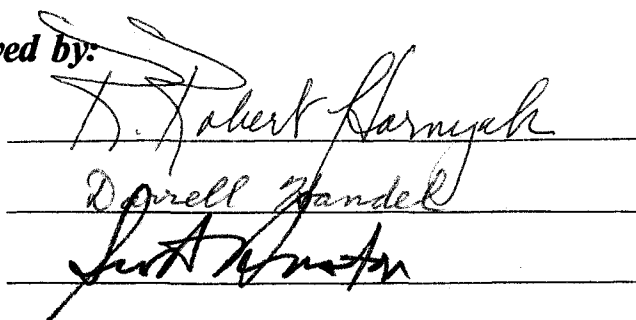 ved by:
R. Robert Hornyak
Darrell Handel
Scott